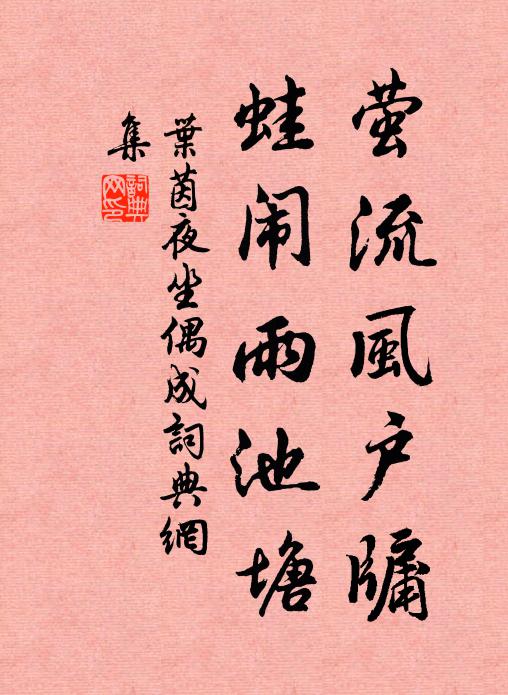 萤流風户牖
蛙闹雨池塘
葉茵夜坐偶成詞典網
集
詞典网印